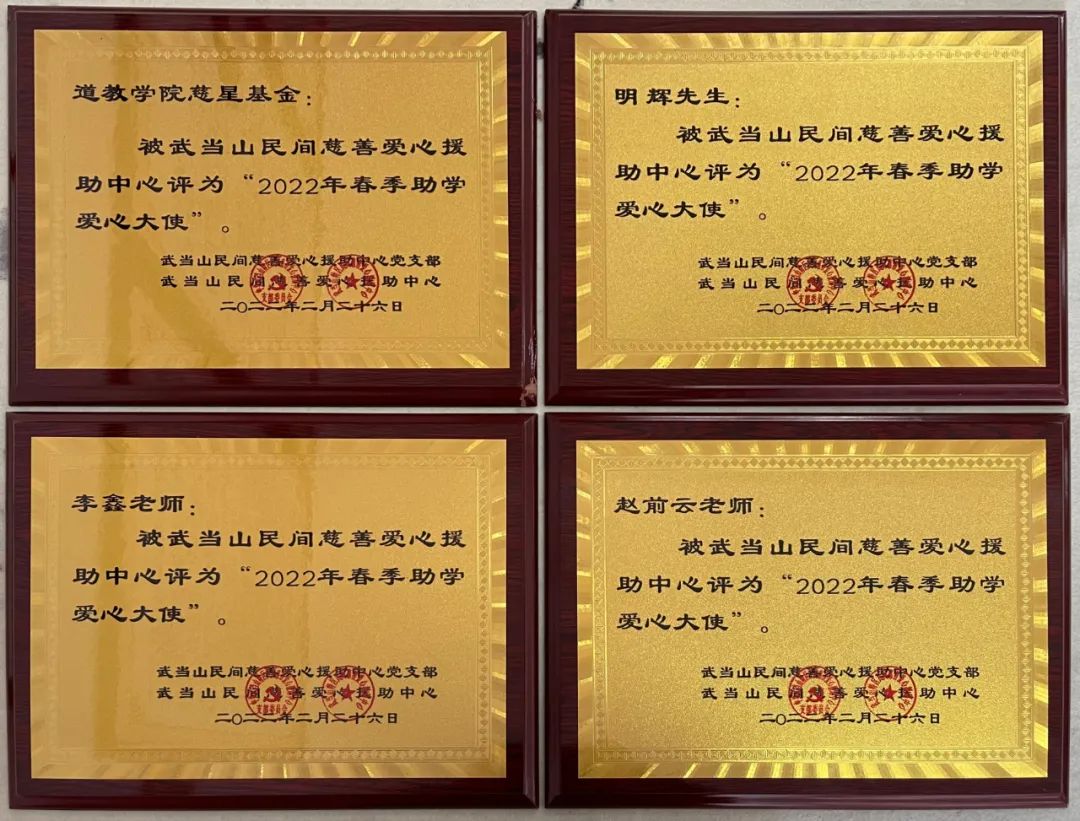 道教学院慈星基金：
被武当山民间慈善爱心援
助中心评为“2022年春季助学
爱心大使”。
武当山民间慈善爱心援助中心党支部
武当山民间慈善爱心援助中心
二〇二二年二月二十六日
明辉先生：
被武当山民间慈善爱心援
助中心评为“2022年春季助学
爱心大使”。
武当山民间慈善爱心援助中心党支部
武当山民间慈善爱心援助中心
二〇二二年二月二十六日
李鑫老师：
被武当山民间慈善爱心援
助中心评为“2022年春季助学
爱心大使”。
武当山民间慈善爱心援助中心党支部
武当山民间慈善爱心援助中心
二〇二二年二月二十六日
赵前云老师：
被武当山民间慈善爱心援
助中心评为“2022年春季助学
爱心大使”。
武当山民间慈善爱心援助中心党支部
武当山民间慈善爱心援助中心
二〇二二年二月二十六日